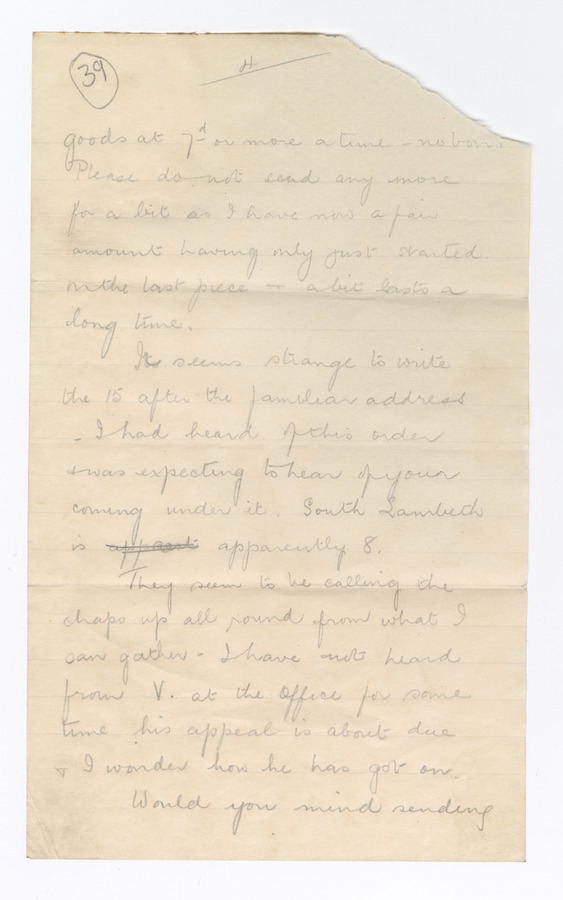 39
4
goods at 7d or more a time - no bon.
Please do not send any more
for a bit as I have now a fair
amount having only just started
on the last piece - a bit lasts a
long time.
It seems strange to write
the 15 after the familiar address
- I had heard of this order
& was expecting to hear of your
coming under it. South Lambeth
is apparently 8.
They seem to be calling the
chaps up all round from what I
can gather - I have not heard
from V. at the Office for some
time his appeal is about due
& I wonder how he has got on.
Would you mind sending